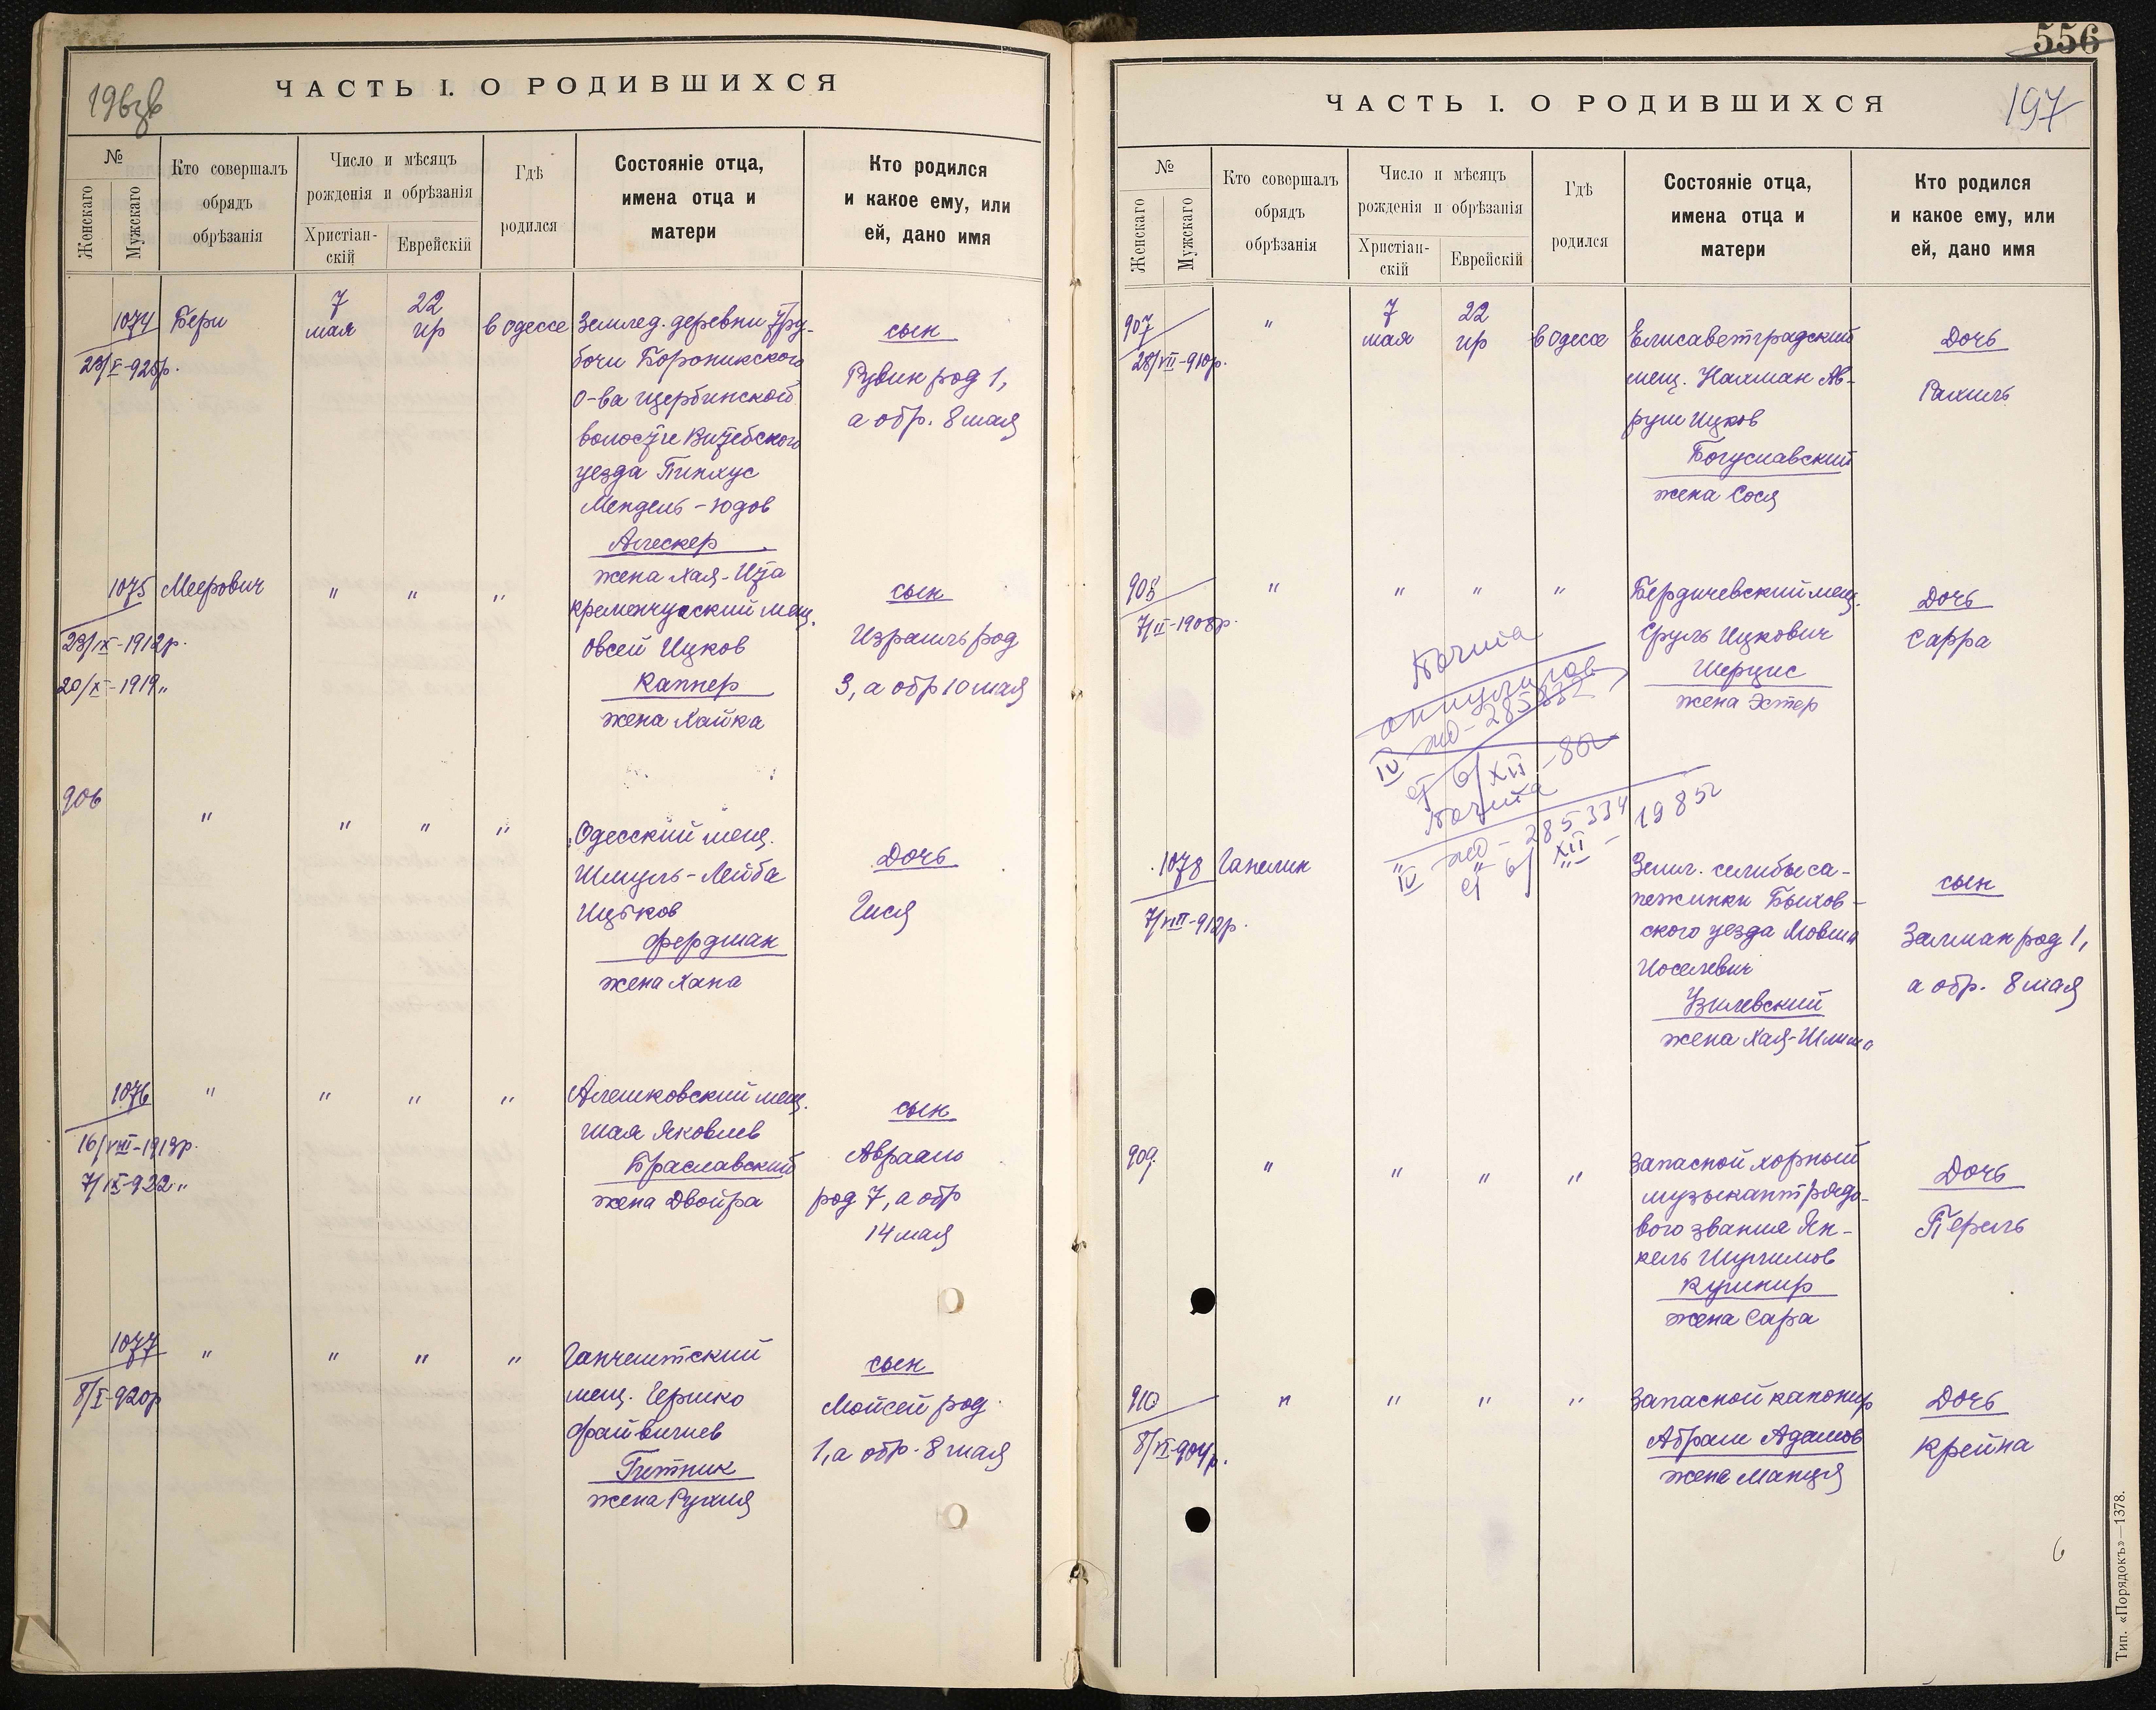 196 зв
ЧАСТЬ I. О РОДИВШИХСЯ
№
Женскаго
Мужскаго
Кто совершалъ
обрядъ
обрѣзанія
Число и мѣсяцъ
рожденія и обрѣзанія
Христіан-
скій
Еврейскій
Гдѣ
родился
Состояніе отца,
имена отца и
матери
Кто родился
и какое ему, или
ей, дано имя
1074
Бери
7
мая
22
ир
в Одессе
Землед. деревни Тру-
бочи Бороникского
о-ва Щербинской
волости Витебского
уезда Пинхус
Мендель-Юдов
Алескер
жена Хая-Ита
сын
Рувин род 1,
а обр. 8 мая
1075
23/IX-1912р.
20/X-1919 "
Меерович
"
"
"
Кременчугский мещ.
Овсей Ицков
Каппер
жена Хайка
сын
Израиль род
3, а обр 10 мая
906
"
"
"
"
Одесский мещ.
Шмуль-Лейба
Ицков
Фердман
жена Хана
Дочь
Гися
1076
16/VIII-1913р.
7/IX-922 "
"
"
"
"
Алешковский мещ.
Шая Яковлев
Браславский
жена Двойра
сын
Авраам
род 7, а обр
14 мая
1077
8/I-920р
"
"
"
"
Ганчештский
мещ. Гершко
Файвишев
Гитник
жена Рухля
сын
Мойсей род
1, а обр. 8 мая
556
197
ЧАСТЬ I. О РОДИВШИХСЯ
№
Женскаго
Мужскаго
Кто совершалъ
обрядъ
обрѣзанія
Число и мѣсяцъ
рожденія и обрѣзанія
Христіан-
скій
Еврейскій
Гдѣ
родился
Состояніе отца,
имена отца и
матери
Кто родился
и какое ему, или
ей, дано имя
907
28/VII-910р.
"
7
мая
22
ир
в Одессе
Елисаветградский
мещ. Нахман Ав-
рум Ицков
Богуславский
жена Сося
Дочь
Рахиль
908
7/II-1908р.
"
"
"
"
Бердичевский мещ.
Сруль Ицкович
Шерцис
жена Эстер
Дочь
Сарра
IV
6/XII-80
IV
285334
6/XII-1985г
1078
7/VIII-912р.
Ганелин
Земл. селибы са-
пежинки Быхов-
ского уезда Мовша
Иоселевич
Узилевский
жена Хая-Шлима
сын
Залман род 1,
а обр. 8 мая
909
"
"
"
"
Запасной хорный
музыкант рядо-
вого звания Ян-
кель Шулимов
Кушнир
жена Сара
Дочь
Перль
910
8/VI-904р.
"
"
"
"
Запасной канонир
Абрам Адамов
жена Манця
Дочь
Крейна
6
Тип. «Порядокъ»—1378.